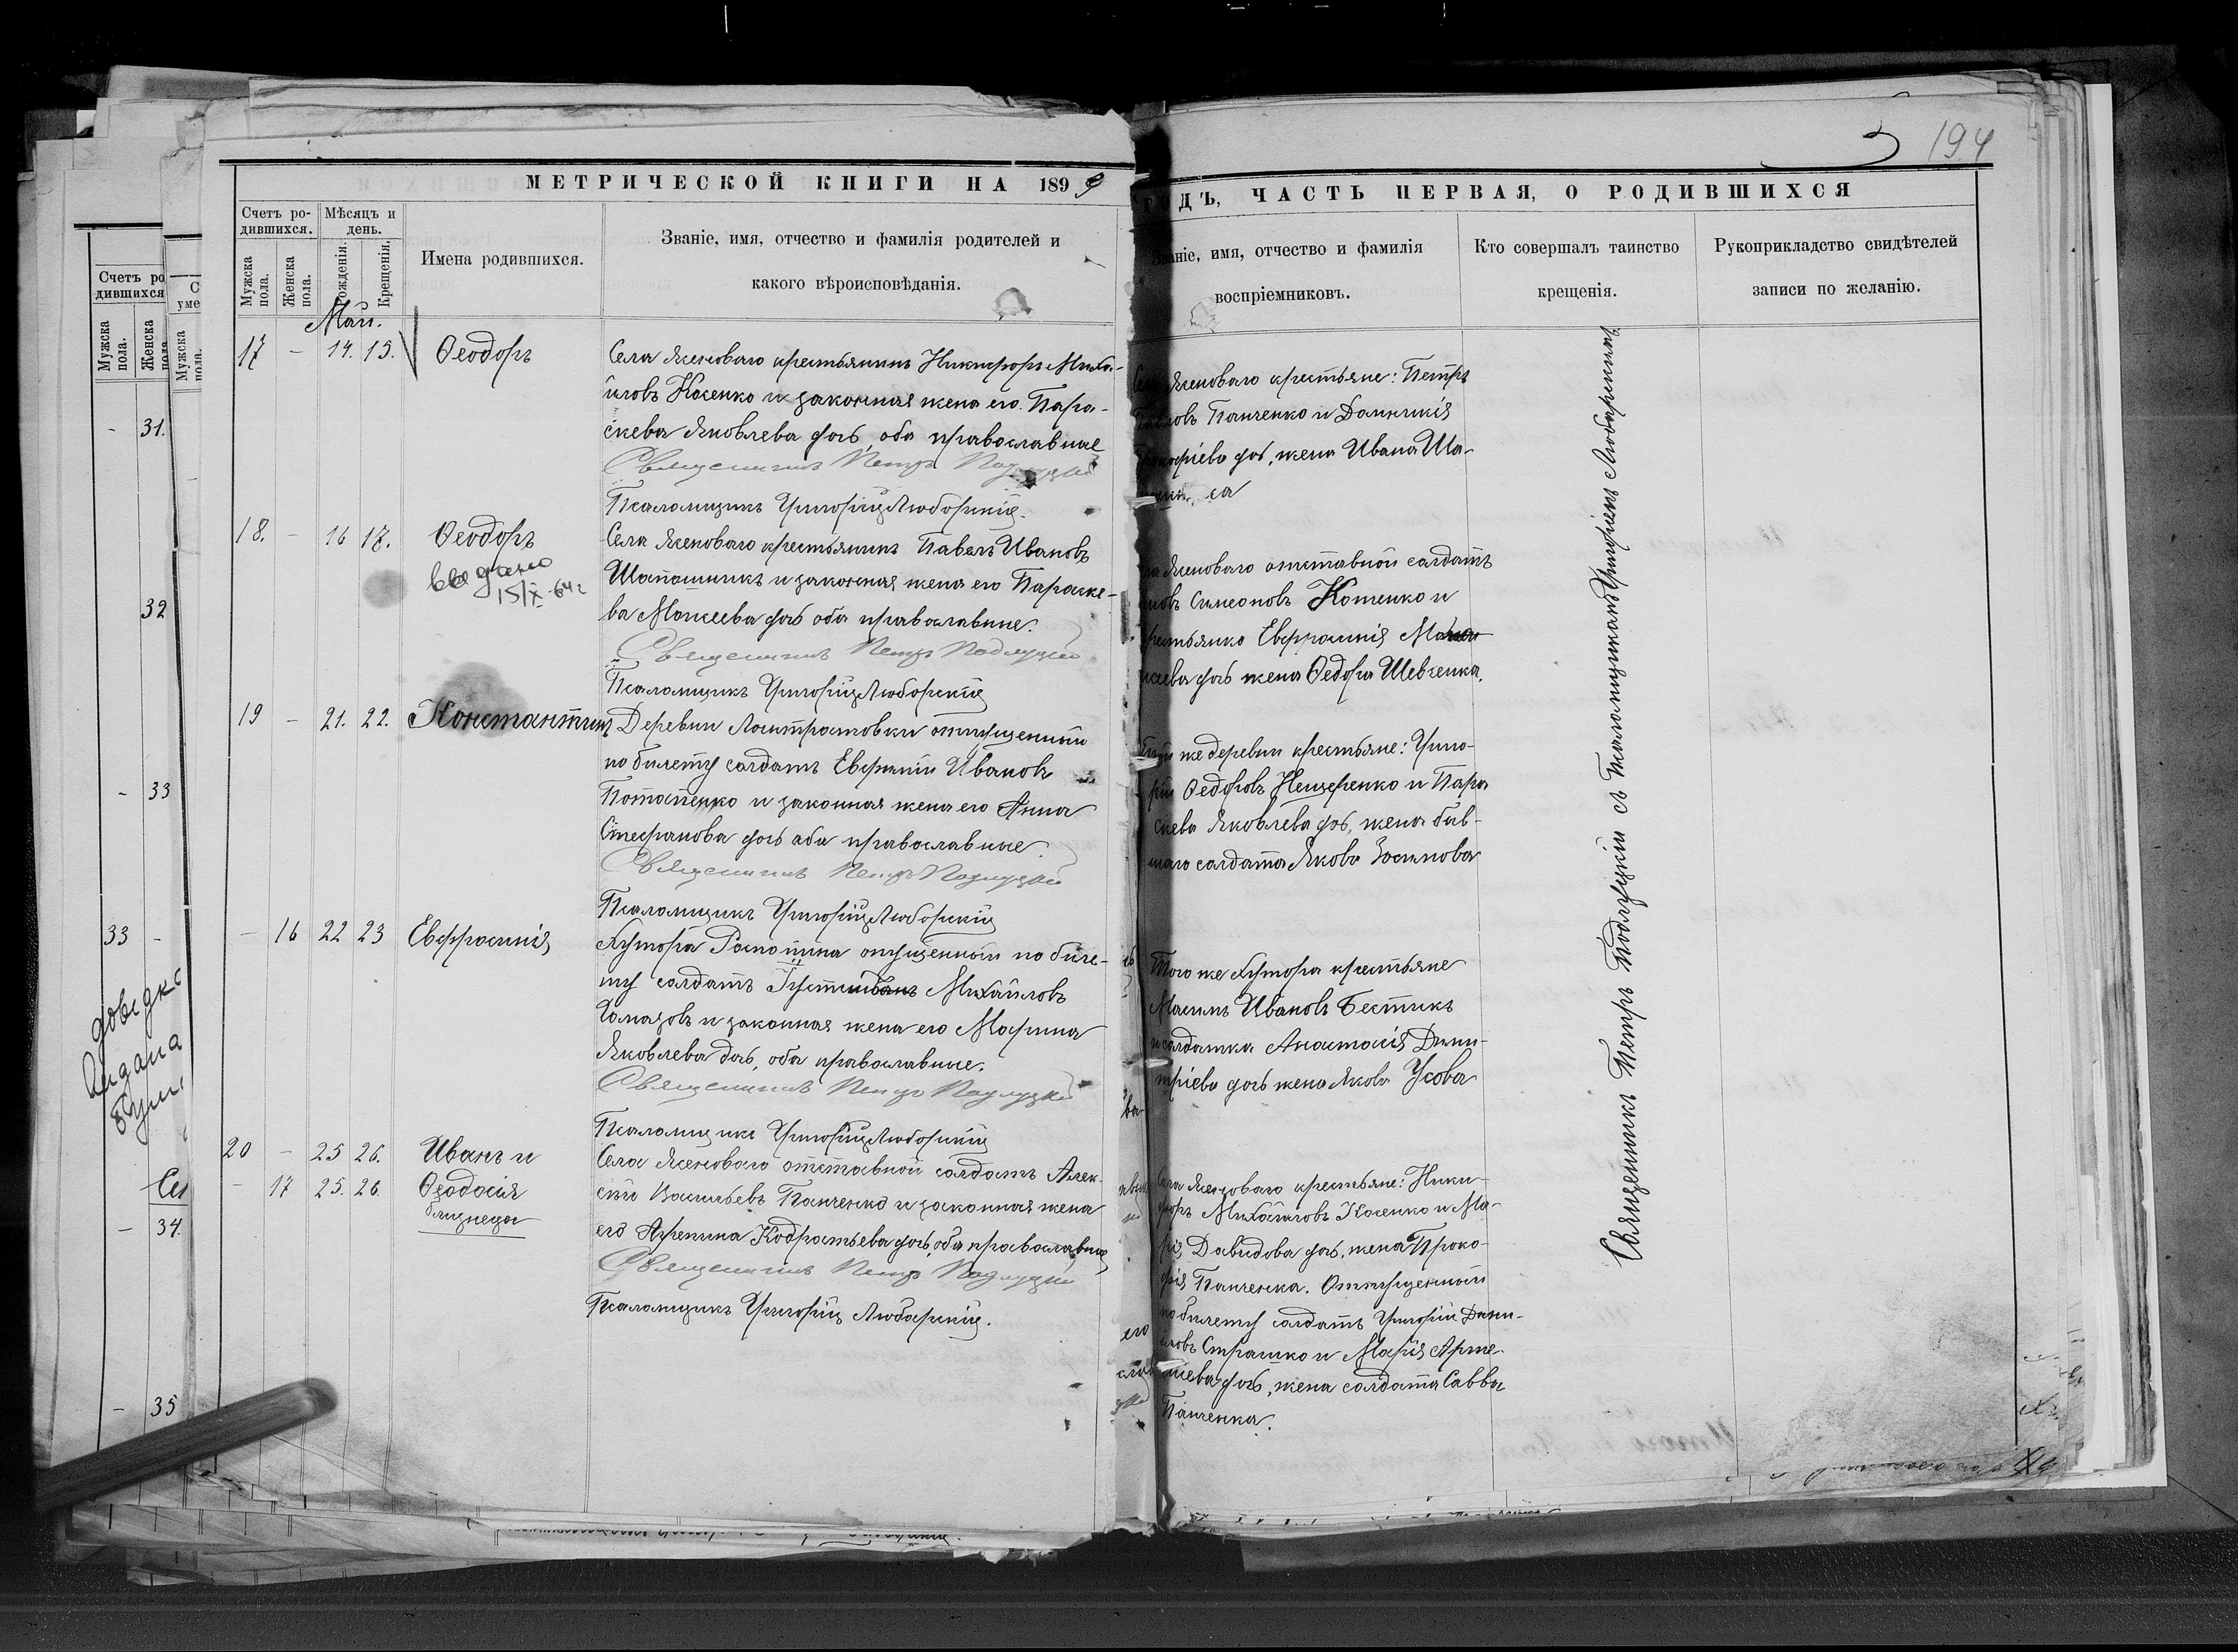 194
МЕТРИЧЕСКОЙ КНИГИ НА 1899
ГОДЪ, ЧАСТЬ ПЕРВАЯ, О РОДИВШИХСЯ
Счетъ ро-
дившихся.
Мѣсяцъ и
день.
Мужска
пола.
Женска
пола.
Рожденія.
Крещенія.
Имена родившихся.
Званіе, имя, отчество и фамилія родителей и
какого вѣроисповѣданія.
Званіе, имя, отчество и фамилія
воспріемниковъ.
Кто совершалъ таинство
крещенія.
Рукоприкладство свидѣтелей
записи по желанію.
Май.
17 - 14. 15. Ѳеодоръ
Села Ясеноваго крестьянинъ Никифоръ Миха-
иловъ Косенко и законная жена его Пара-
скева Яковлева дочь, оба православные
Священникъ Петръ Подлуцкій
Псаломщикъ Григорій Любарскій.
Села Ясеноваго крестьяне: Петръ
Павловъ Панченко и Домникія
жена Ивана Ша-
18. - 16 17. Ѳеодоръ
выдано
15/X-64г
Села Ясеноваго крестьянинъ Павелъ Ивановъ
Шапошникъ и законная жена его Параске-
ва Моисеева дочь оба православные.
Священникъ Петръ Подлуцкій
Псаломщикъ Григорій Любарскій
Ясеноваго отставной солдатъ
Симеоновъ Котенко и
крестьянка Евфросинія
дочь жена Ѳедора Шевченка.
19 - 21. 22. Константинъ
Деревни отпущенный
по билету солдатъ Евфимій Ивановъ
Потапенко и законная жена его Анна
Стефанова дочь оба православные.
Священникъ Петръ Подлуцкій
Псаломщикъ Григорій Любарскій
Той же деревни крестьяне: Григо-
рій Ѳедоровъ Нещеренко и Пара
скева Яковлева дочь, жена быв-
шаго солдата Якова
- 16 22 23 Евфросинія
Хутора отпущенный по биле-
ту солдатъ Михаиловъ
и законная жена его Марина
Яковлева дочь, оба православные.
Священникъ Петръ Подлуцкій
Псаломщикъ Григорій Любарскій
Того же Хутора крестьяне
Ивановъ Бестикъ
и солдатка Анастасія Дими-
тріева дочь жена Якова Усова
20 - 25 26. Иванъ и
- 17 25. 26. Ѳеодосія
близнецы
Села Ясеноваго отставной солдатъ Алек-
сѣй Васильевъ Панченко и законная жена
его Агрепина Кодратьева дочь, оба православные
Священникъ Петръ Подлуцкій
Псаломщикъ Григорій Любарскій.
Села Ясеноваго крестьяне: Ники-
форъ Михаиловъ Косенко и Ма-
рія Давидова дочь, жена Проко-
фія Панченка. Отпущенный
по билету солдатъ Григорій Дани-
ловъ Страшко и Марія Арте-
дочь, жена солдата Саввы
Панченка.
Священникъ Петръ Подлуцкій съ Псаломщикомъ Григоріемъ Любарскимъ
Счетъ ро
дившихся
Мужска
пола.
Женска
пола
Мужска
пола.
- 31.
32
- 33
33 -
- 34.
- 35